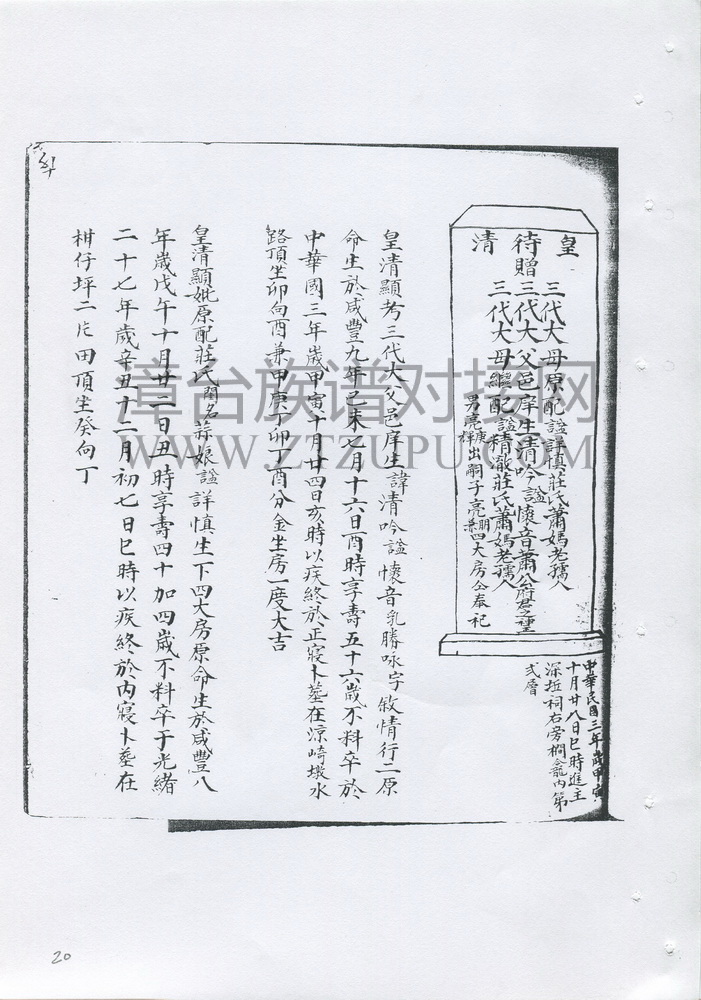 皇
清
待贈
三代大母原配謚詳慎莊氏蕭媽老孺人
三代大父邑庠生清吟謚懷音蕭公府君之
三代大母繼配謚精澈莊氏蕭媽老孺人
男亮庚禪出嗣子亮朋兼四大房仝奉祀
中華民國三年歲甲寅
十月廿八日巳時進主
深坵祠右旁櫥龕內第
弍層
皇清顯考三代大父邑庠生諱清吟謚懷音乳勝咏字敘情行二原
命生於咸豐九年己未七月十六日酉時享壽五十六歲不料卒於
中華國三年歲甲寅十月廿四日亥時以疾終於正寢卜塟在涼崎墩水
路頂坐卯向酉兼甲庚丁卯丁酉分金坐房一度大吉
皇清顯妣原配莊氏閨名蒜娘謚詳慎生下四大房原命生於咸豐八
年歲戊午十月廿二日丑時享壽四十加四歲不料卒于光緒
二十七年歲辛丑十二月初七日巳時以疾終於內寢卜塟在
柑仔坪二坵田頂坐癸向丁
漳台族谱对接网
WWW.ZTZUPU.COM
20